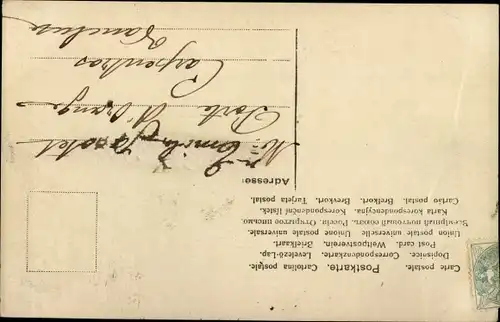 Carte postale. Postkarte. Cartolina postale.
Dopisnice. Correspondenzkarte. Levelező-Lap.
Post card. Weltpostverein. Briefkaart.
Union postale universelle. Unione postale universale.
Karta korespondencyjna. Korespondenční lístek.
Cartão postal. Brefkort. Brevkort. Tarjeta postal.
Adresse:
Porte d'Orange
Carpentras
Vaucluse